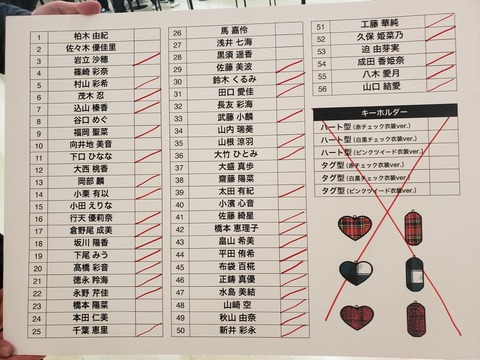 1 柏木 由紀
2 佐々木 優佳里
3 岩立 沙穂
4 篠崎 彩奈
5 村山 彩希
6 茂木 忍
7 込山 榛香
8 谷口 めぐ
9 福岡 聖菜
10 向井地 美音
11 下口 ひなな
12 大西 桃香
13 岡部 麟
14 小栗 有以
15 小田 えりな
16 行天 優莉奈
17 倉野尾 成美
18 坂川 陽香
19 下尾 みう
20 髙橋 彩音
21 徳永 羚海
22 永野 芹佳
23 橋本 陽菜
24 本田 仁美
25 千葉 恵里
26 馬 嘉伶
27 浅井 七海
28 黒須 遥香
29 佐藤 美波
30 鈴木 くるみ
31 田口 愛佳
32 長友 彩海
33 武藤 小麟
34 山内 瑞葵
35 山根 涼羽
36 大竹 ひとみ
37 大盛 真歩
38 齋藤 陽菜
39 太田 有紀
40 小濱 心音
41 佐藤 綺星
42 橋本 恵理子
43 畠山 希美
44 平田 侑希
45 布袋 百椛
46 正鋳 真優
47 水島 美結
48 山﨑 空
49 秋山 由奈
50 新井 彩永
51 工藤 華純
52 久保 姫菜乃
53 迫 由芽実
54 成田 香姫奈
55 八木 愛月
56 山口 結愛
キーホルダー
ハート型 (赤チェック衣装ver.)
ハート型 (白黒チェック衣装ver.)
ハート型 (ピンクツイード衣装ver.)
タグ型 (赤チェック衣装ver.)
タグ型 (白黒チェック衣装ver.)
タグ型 (ピンクツイード衣装ver.)